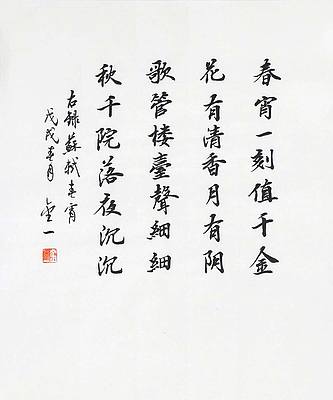 春宵一刻值千金
花有清香月有阴
歌管楼臺聲細細
秋千院落夜沉沉
右録蘇軾春宵
戊戌春月 金一